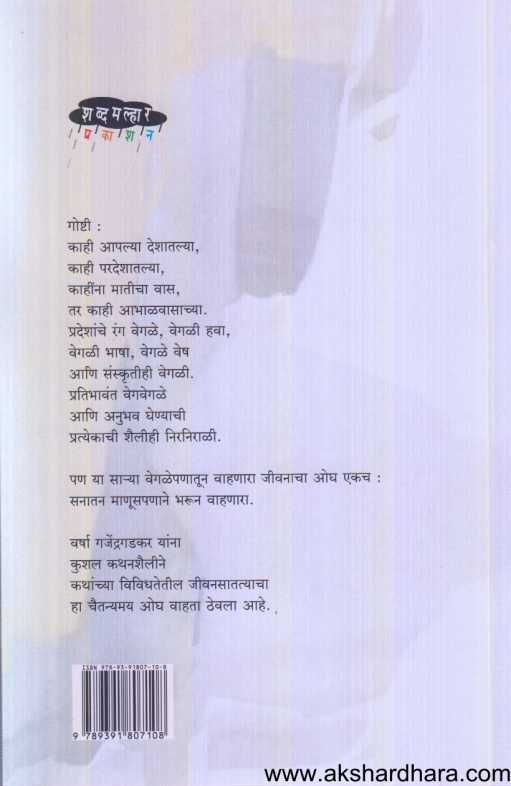 शब्दमल्हार
प्रकाशन
गोष्टी :
काही आपल्या देशातल्या,
काही परदेशातल्या,
काहींना मातीचा वास,
तर काही आभाळवासाच्या.
प्रदेशांचे रंग वेगळे, वेगळी हवा,
वेगळी भाषा, वेगळे वेष
आणि संस्कृतीही वेगळी.
प्रतिभावंत वेगवेगळे
आणि अनुभव घेण्याची
प्रत्येकाची शैलीही निरनिराळी.
पण या साऱ्या वेगळेपणातून वाहणारा जीवनाचा ओघ एकच :
सनातन माणूसपणाने भरून वाहणारा.
वर्षा गजेंद्रगडकर यांना
कुशल कथनशैलीने
कथांच्या विविधतेतील जीवनसातत्याचा
हा चैतन्यमय ओघ वाहता ठेवला आहे.
ISBN 978-93-91807-10-8
9 789391 807108
www.akshardhara.com